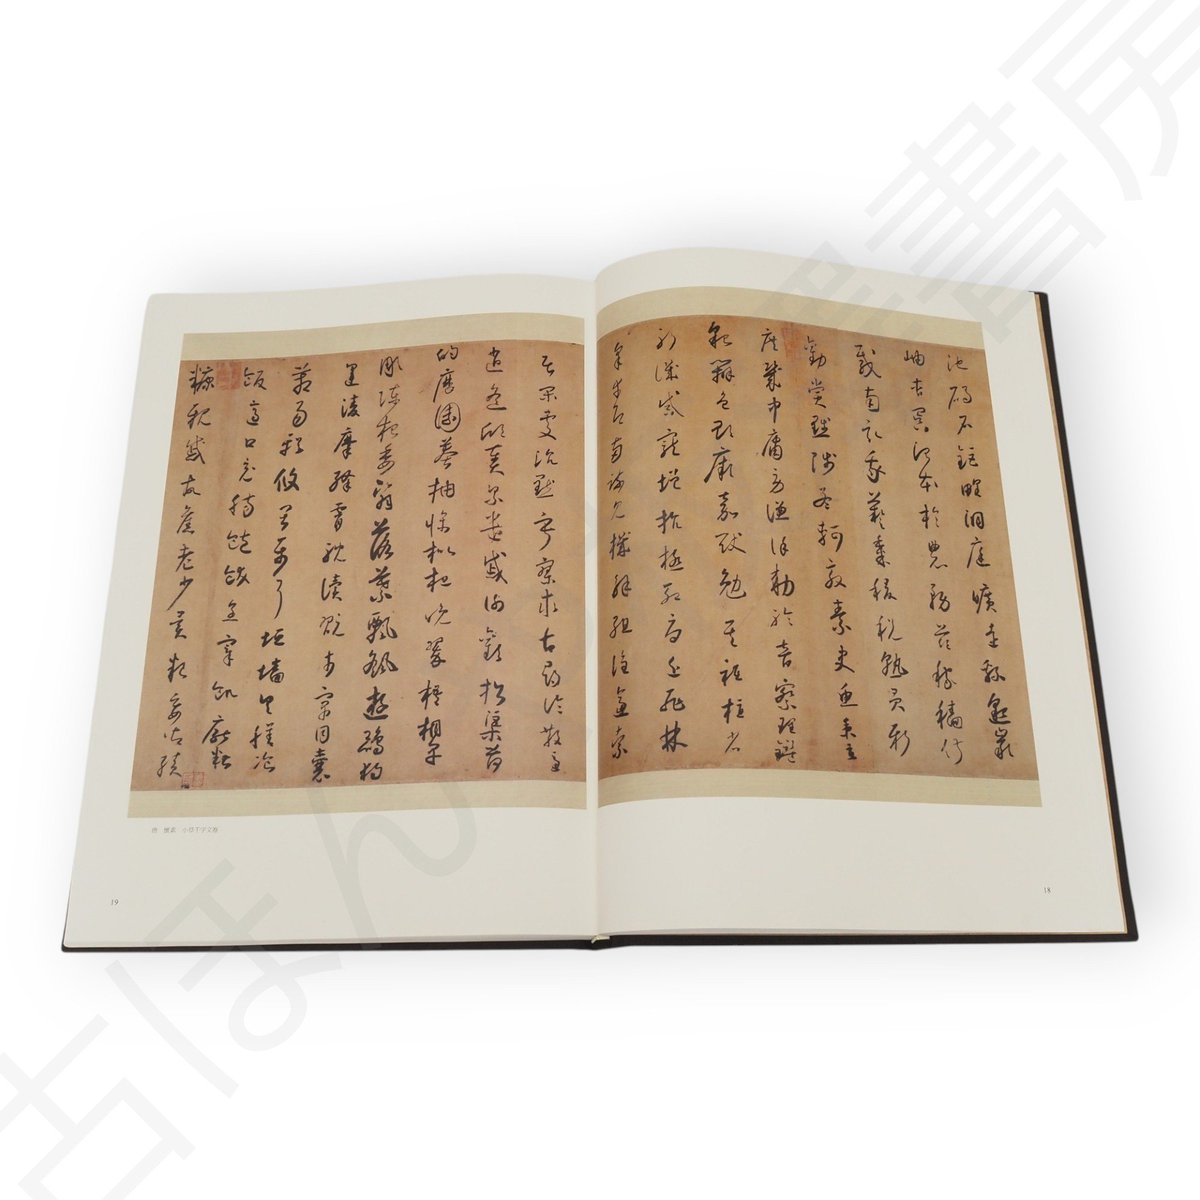 池碣石鉅野洞庭曠遠緜邈巖
岫杳冥治本於農務茲稼穡俶
載南畝我藝黍稷稅熟貢新
勸賞黜陟孟軻敦素史魚秉直
庶幾中庸勞謙謹勅聆音察理鑑
貌辨色貽厥嘉猷勉其祗植省
躬譏誡寵增抗極殆辱近恥林
皋幸即兩疏見機解組誰逼索
居閑處沉默寂寥求古尋論散慮
逍遙欣奏累遣慼謝歡招渠荷
的歷園莽抽條枇杷晚翠梧桐早
凋陳根委翳落葉飄颻遊鵾獨
運凌摩絳霄耽讀翫市寓目囊
箱易輶攸畏屬耳垣牆具膳飡
飯適口充腸飽飫烹宰飢厭糟
糠親戚故舊老少異糧妾御績
唐 懷素 小草千字文卷
18
19
古ほん
書房